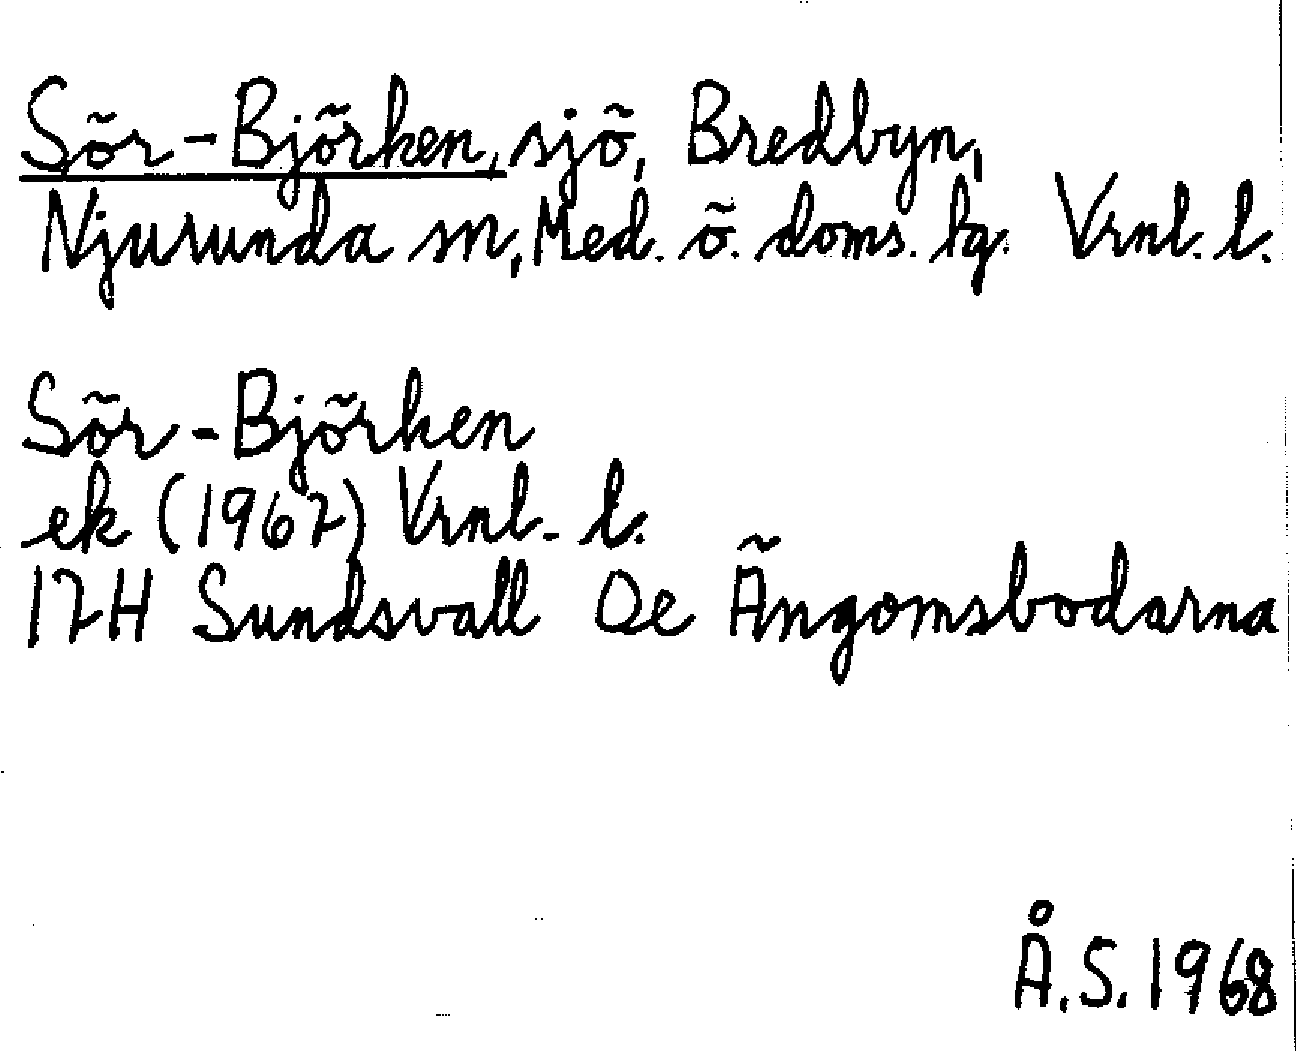 Sör-Björken, sjö, Bredbyn,
Njurunda sn, Med. ö. doms. lg. Vrnl. l.
Sör-Björken
ek (1967) Vrnl. l.
17H Sundsvall Oe Ängomsbodarna
Å.S. 1968